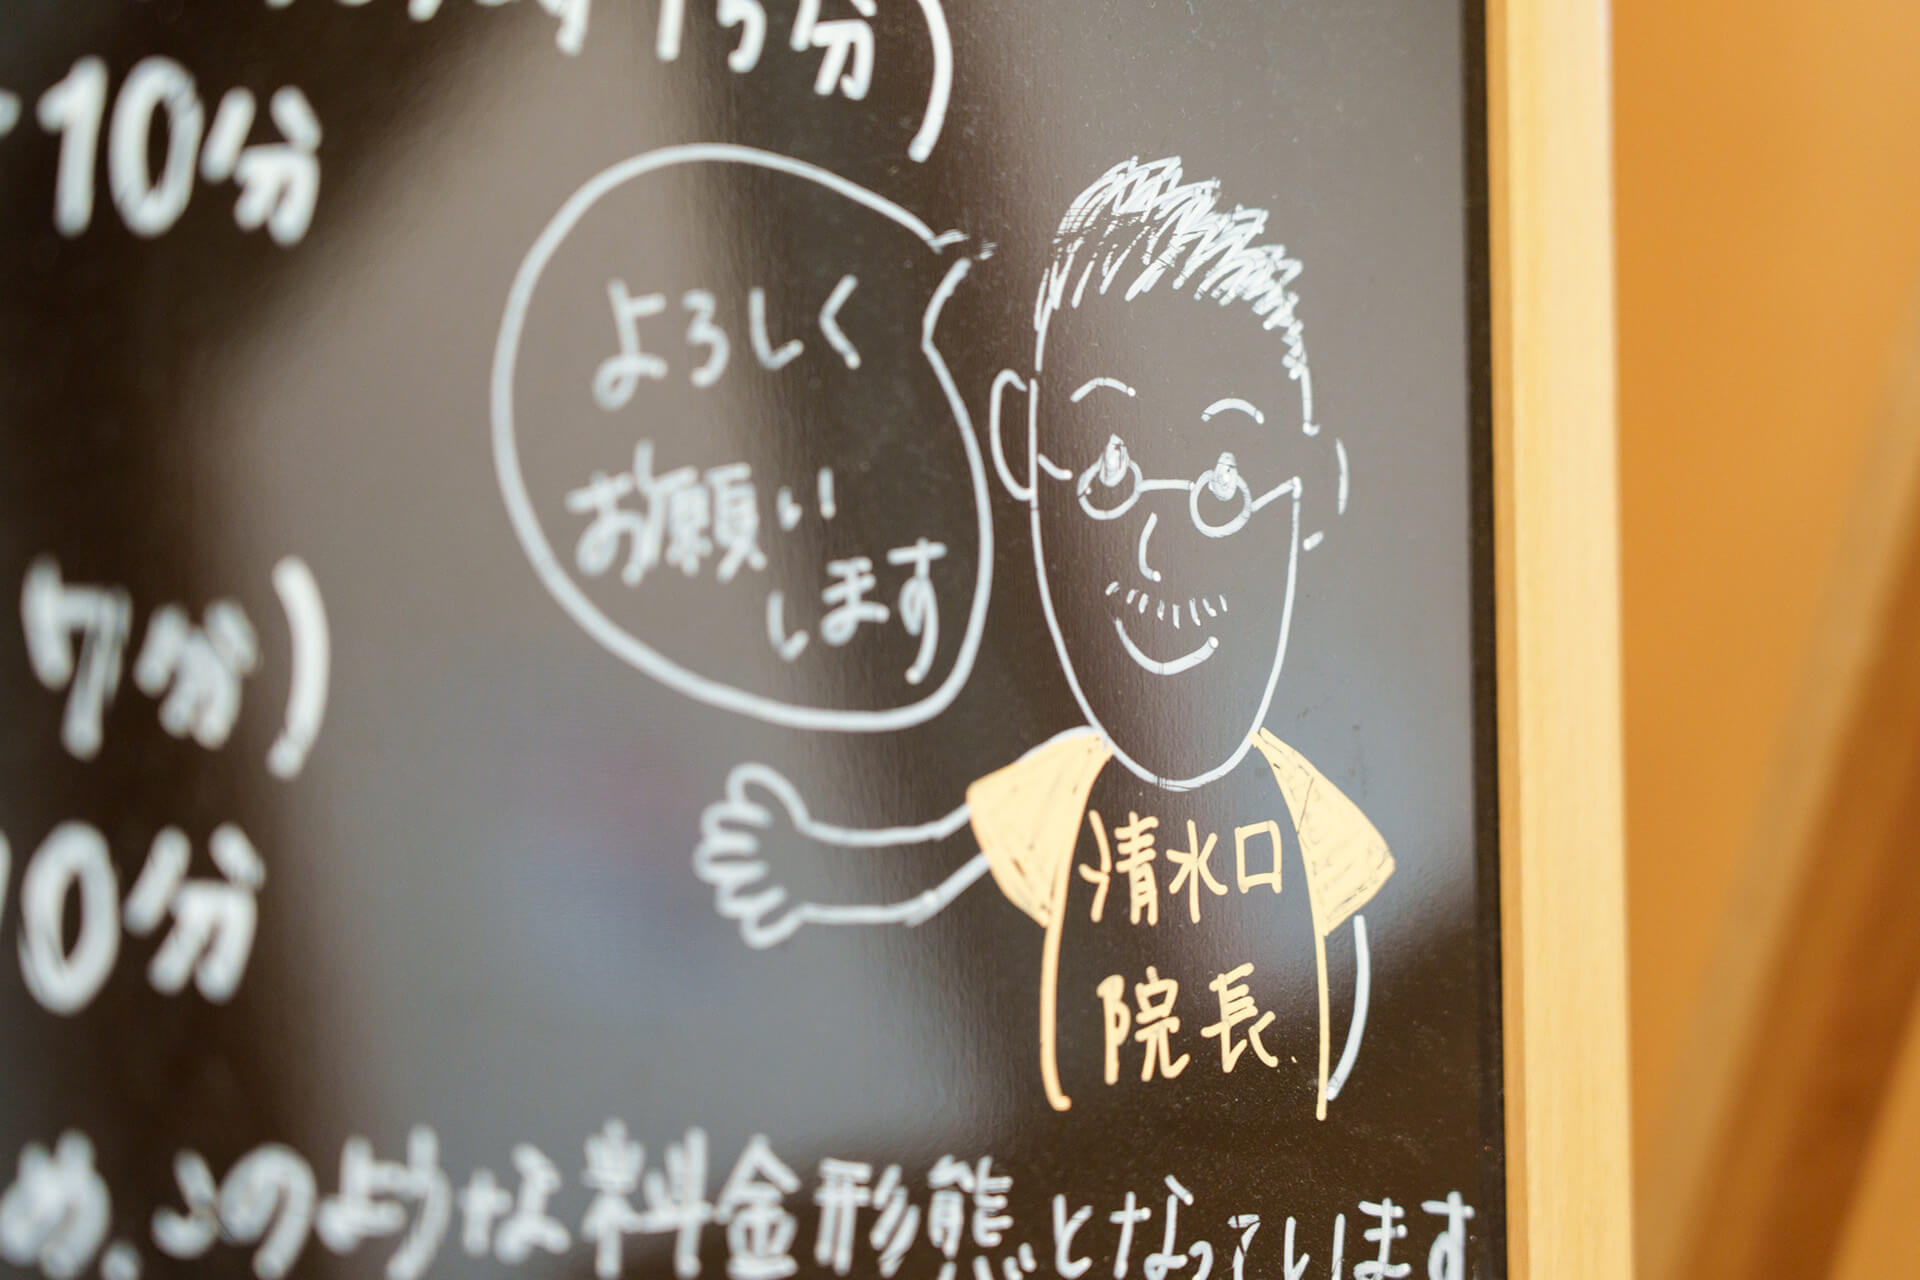 15分)
10分
よろしく
お願い
します
7分)
10分
清水口
院長
め、このような料金形態となっています